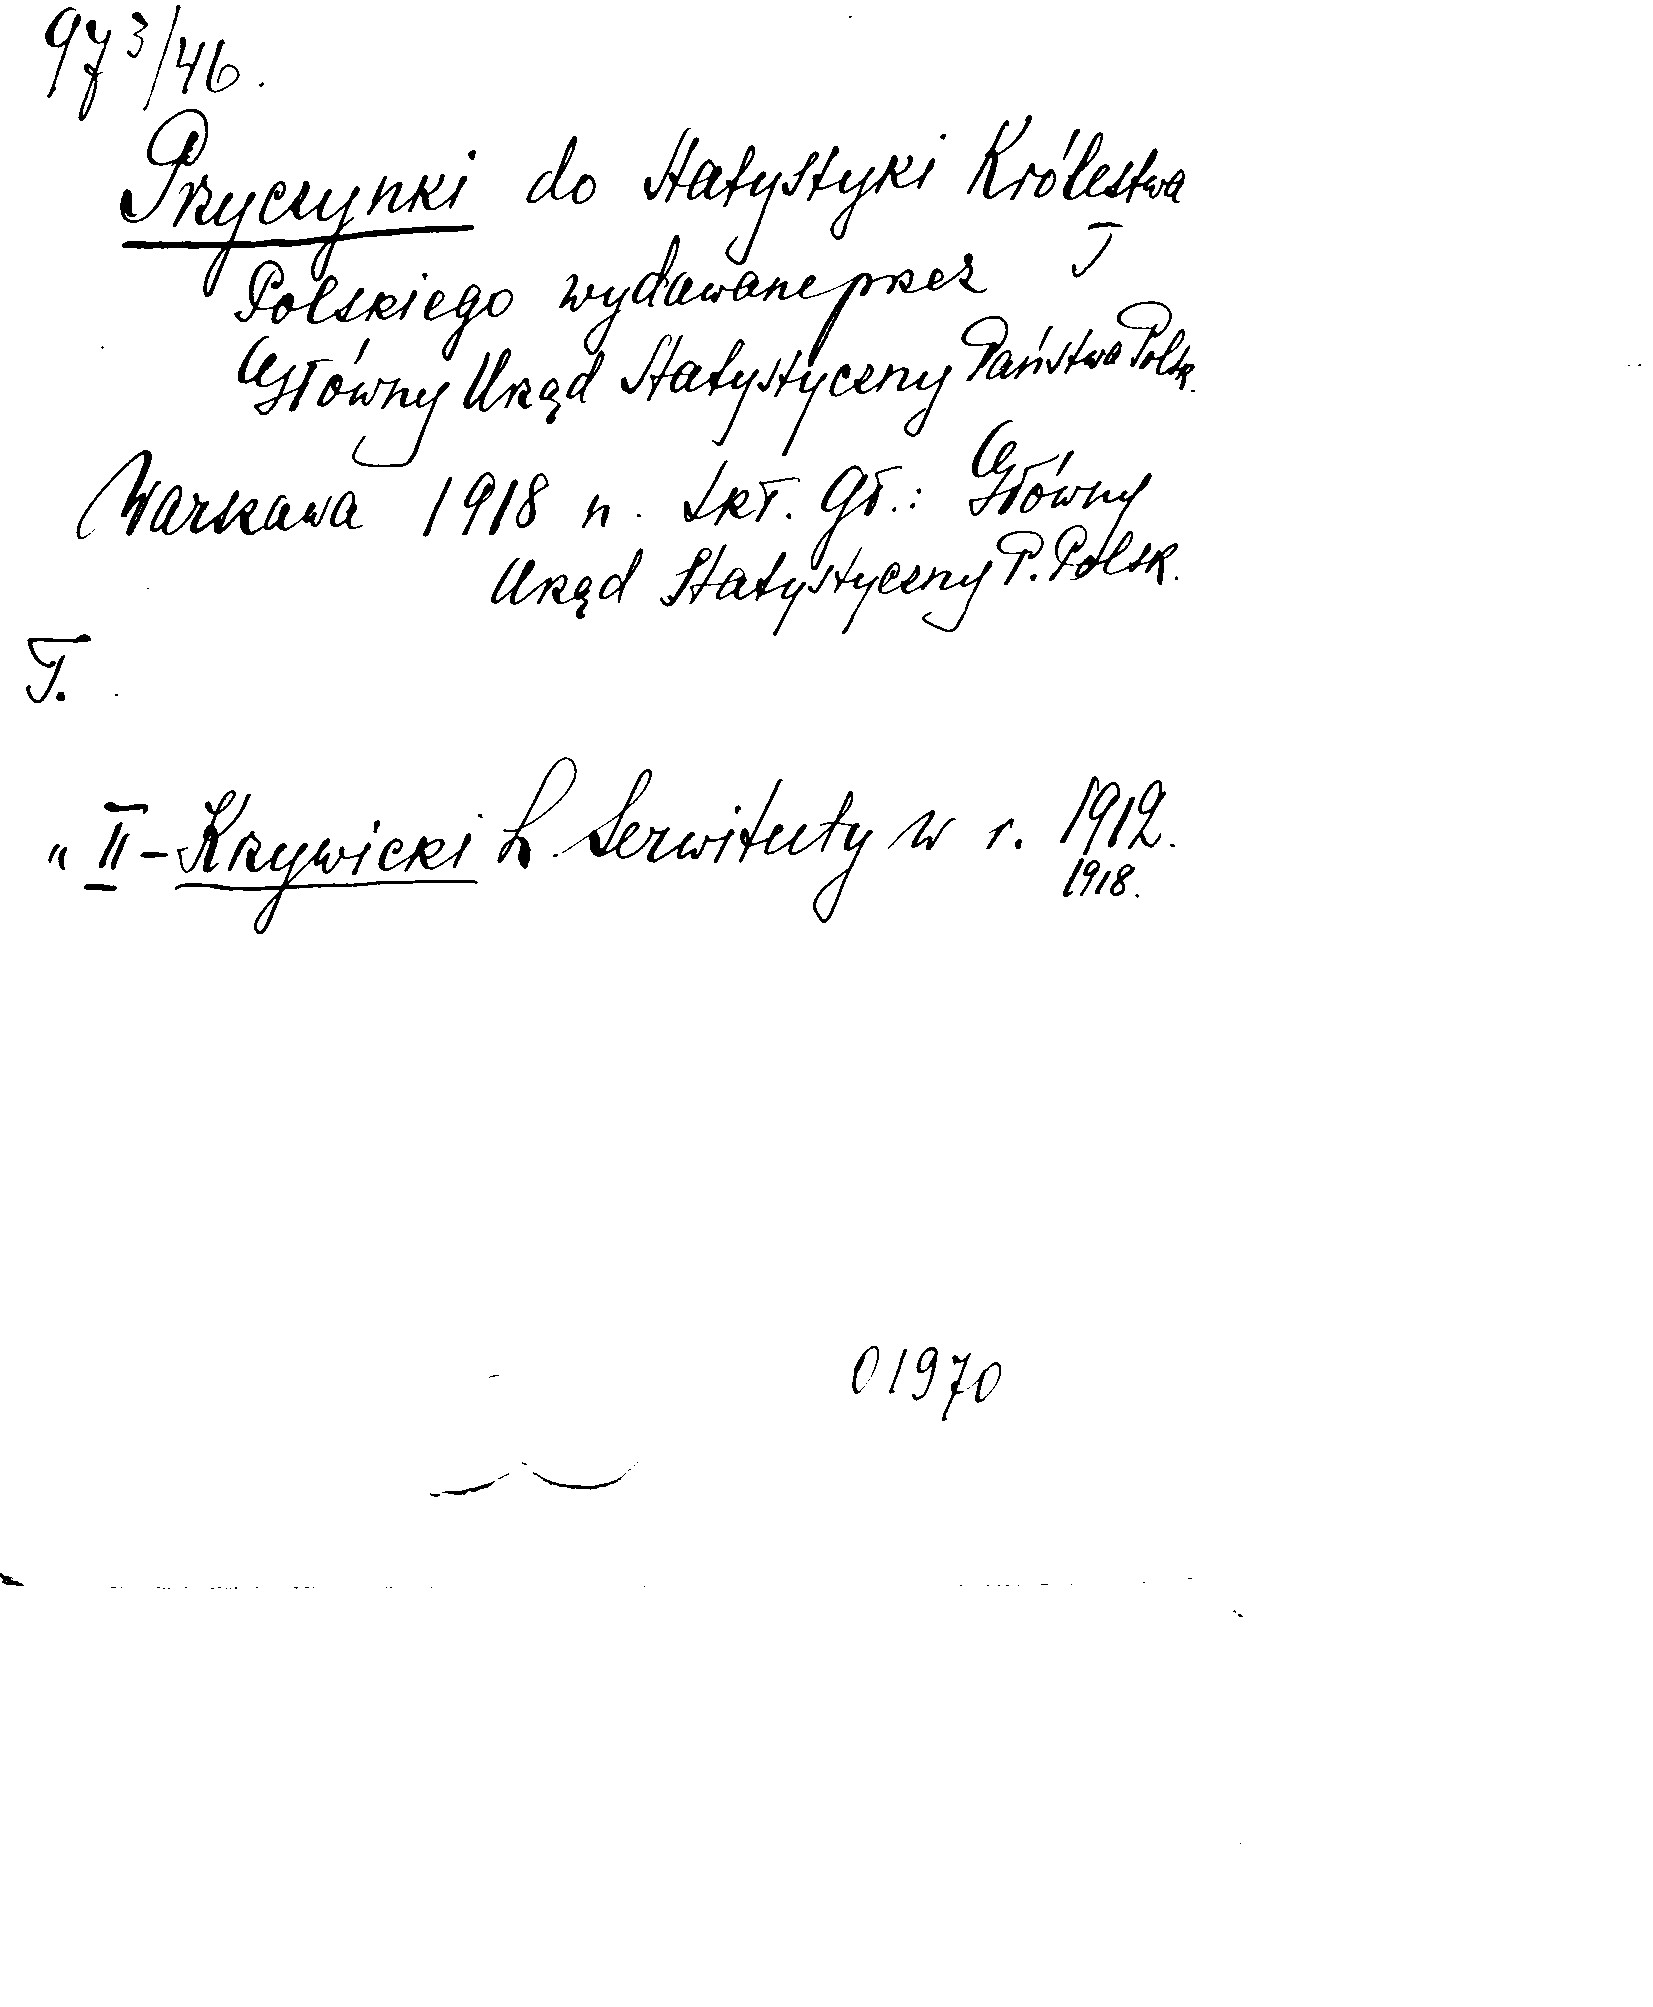 973/46.
Przyczynki do Statystyki Królestwa
Polskiego wydawane przez
Główny Urząd Statystyczny Państwa Polsk.
Warszawa 1918 n. Skł. Gł.: Główny
Urząd Statystyczny P. Polsk.
T.
" II - Krzywicki L. Serwituty w r. 1912.
1918.
01970